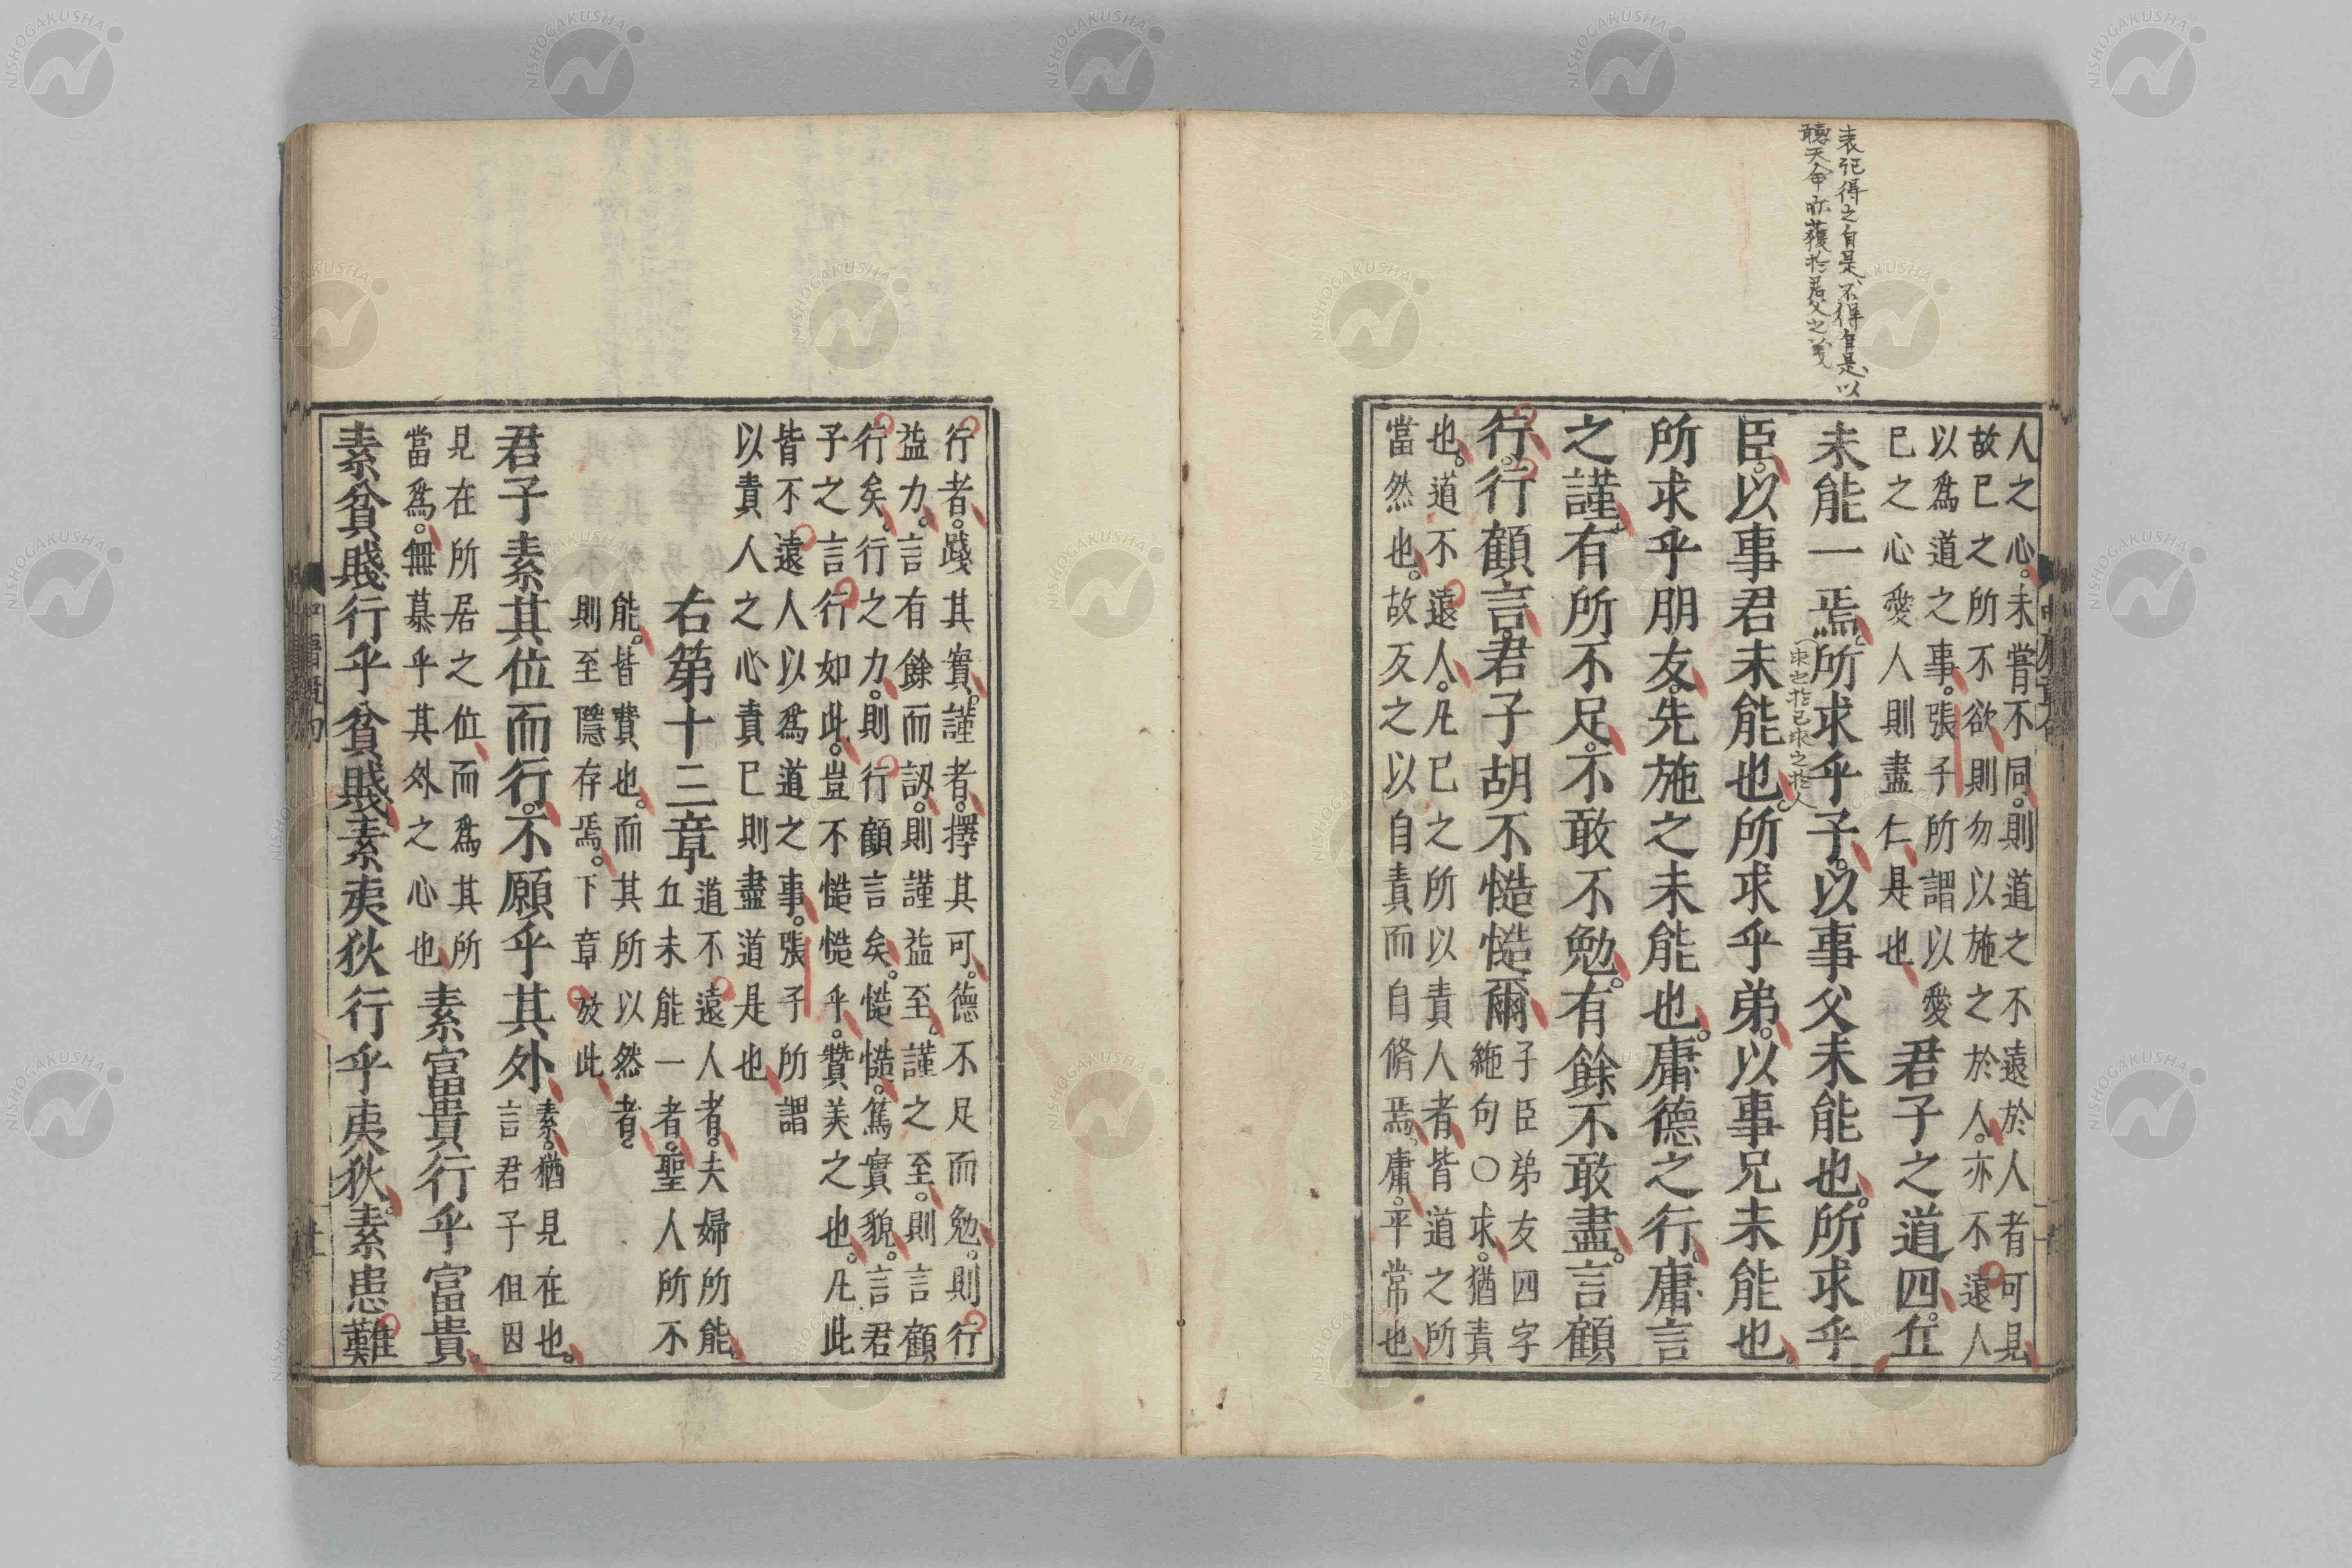 表記得之自是、不得自是、以
聽天命
人之心。未嘗不同。則道之不遠於人者可見
故己之所不欲則勿以施之於人。亦不遠人
以爲道之事。張子所謂以愛
己之心愛人則盡仁是也
君子之道四。丘
未能一焉。所求乎子。以事父未能也。所求乎
臣。以事君未能也。所求乎弟。以事兄未能也。
所求乎朋友。先施之未能也。庸德之行。庸言
之謹。有所不足。不敢不勉。有餘不敢盡。言顧
行。行顧言。君子胡不慥慥爾
子臣弟友四字
絶句○求。猶責
也。道不遠人。凡己之所以責人者皆道之所
當然也。故反之以自責而自脩焉。庸。平常也
行者。踐其實。謹者。擇其可。德不足而勉。則行
益力。言有餘而訒。則謹益至。謹之至。則言顧
行矣。行之力。則行顧言矣。慥慥。篤實貌。言君
子之言行如此。豈不慥慥乎。贊美之也。凡此
皆不遠人以爲道之事。張子所謂
以責人之心責己則盡道是也
右第十三章
道不遠人者。夫婦所能。
丘未能一者。聖人所不
能。皆費也。而其所以然者。
則至隱存焉。下章放此
君子素其位而行。不願乎其外
素。猶見在也。
言君子但因
見在所居之位而爲其所
當爲。無慕乎其外之心也
素富貴行乎富貴。
素貧賤行乎貧賤素夷狄行乎夷狄。素患難
NISHOGAKUSHA